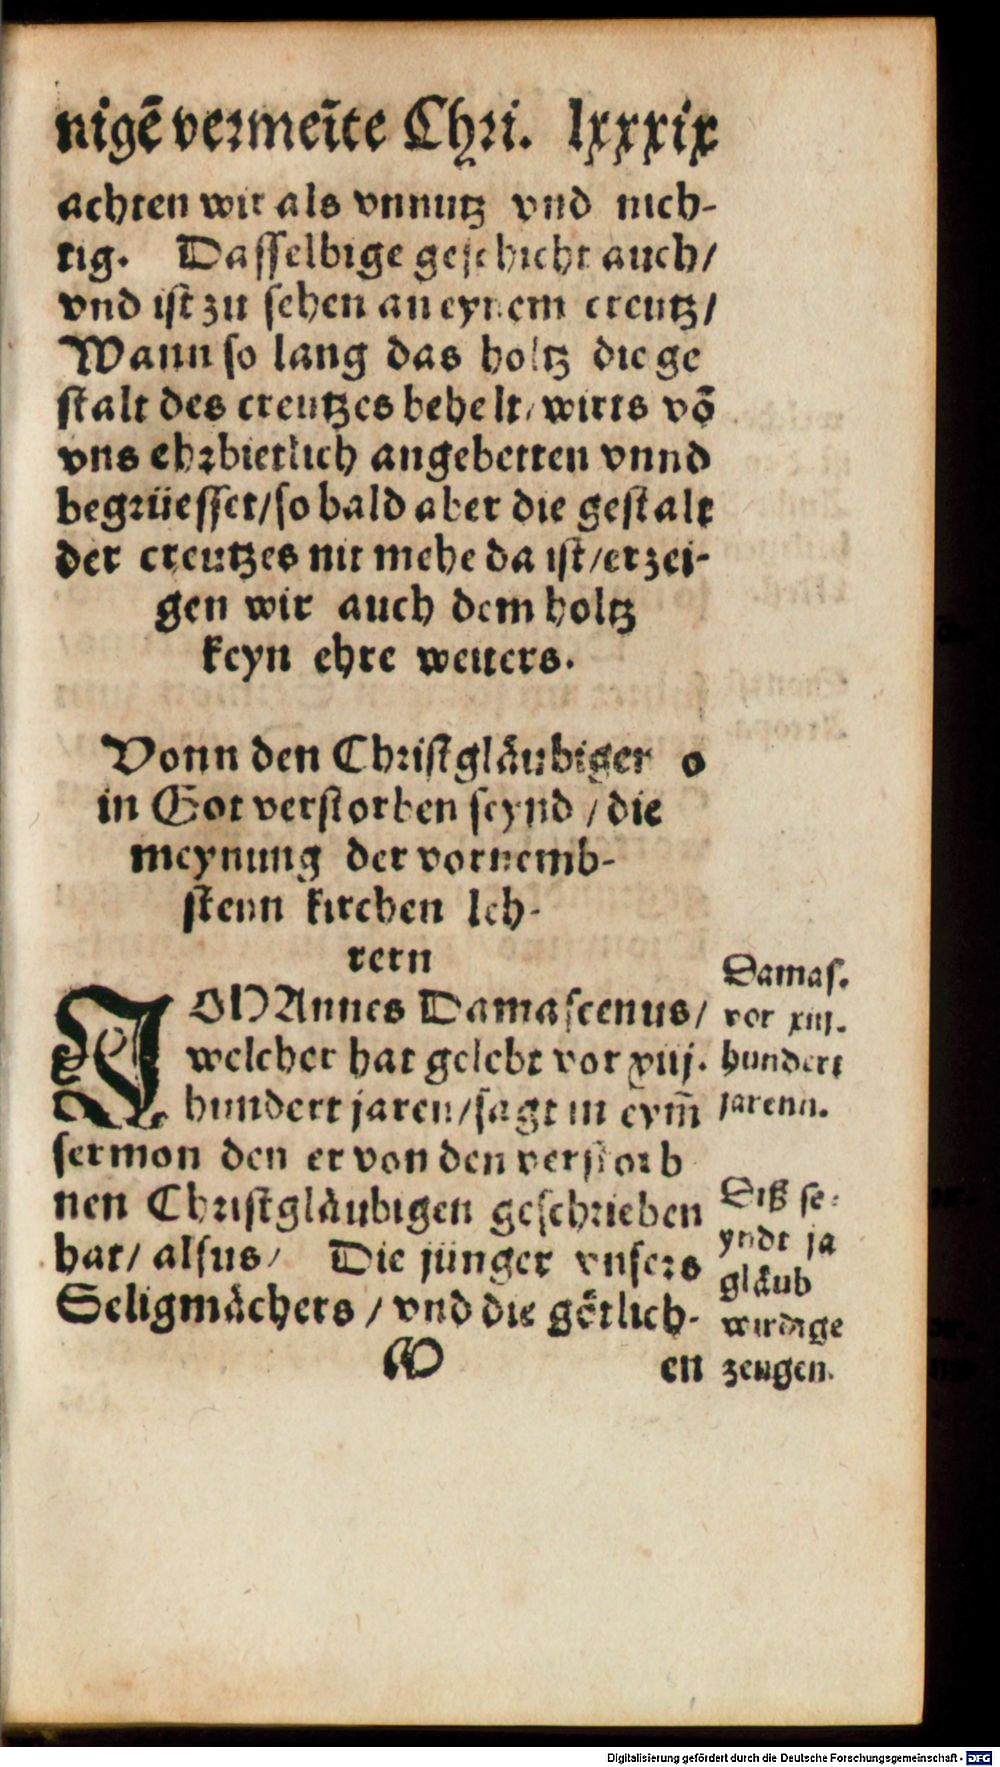 nigē vermeīte Chri. lxxxix
achten wir als vnnutz vnd nich-
tig. Dasselbige geschicht auch/
vnd ist zu sehen an eynem creutz/
Wann so lang das holtz die ge
stalt des creutzes behelt/ wirts vō
vns ehrbietlich angebetten vnnd
begrüesset/ so bald aber die gestalt
der creutzes nit mehe da ist/ erzei-
gen wir auch dem holtz
keyn ehre weiters.
Vonn den Christgläubiger o
in Got verstorben seynd / die
meynung der vornemb-
stenn kirchen leh-
rern
IOHAnnes Damascenus/
welcher hat gelebt vor xiij.
hundert jaren/ sagt in eym̄
sermon den er von den verstorb
nen Christgläubigen geschrieben
hat/ alsus/ Die jünger vnsers
Seligmächers / vnd die götlich-
M en
Damas.
vor xiij.
hundert
jarenn.
Diß se-
yndt ja
gläub
wirdige
zeugen.
Digitalisierung gefördert durch die Deutsche Forschungsgemeinschaft - DFG